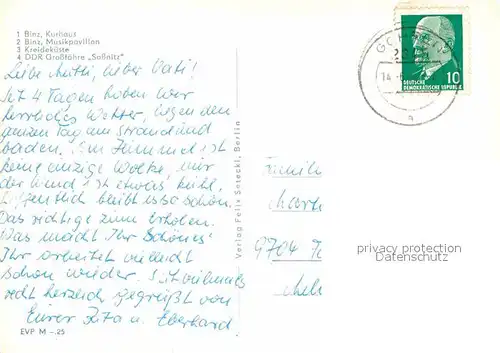 1 Binz, Kurhaus
2 Binz, Musikpavillon
3 Kreideküste
4 DDR Großfähre „Saßnitz"
Liebe Mutti, lieber Vati!
Seit 4 Tagen haben wir
herrliches Wetter, liegen den
ganzen Tag am Strand und
baden. Am Himmel ist
keine einzige Wolke, nur
der Wind ist etwas kühl.
Hoffentlich bleibt es so schön.
Das richtige zum Erholen.
Was macht Ihr Schönes?
Ihr arbeitet vielleicht
schon wieder. Seit vielmals
recht herzlich gegrüßt von
Eurer Rita u. Eberhard.
EVP M -.25
Verlag Felix Setecki, Berlin
14
a
10
DEUTSCHE
DEMOKRATISCHE REPUBLIK
Famili
9704
privacy protection
Datenschutz